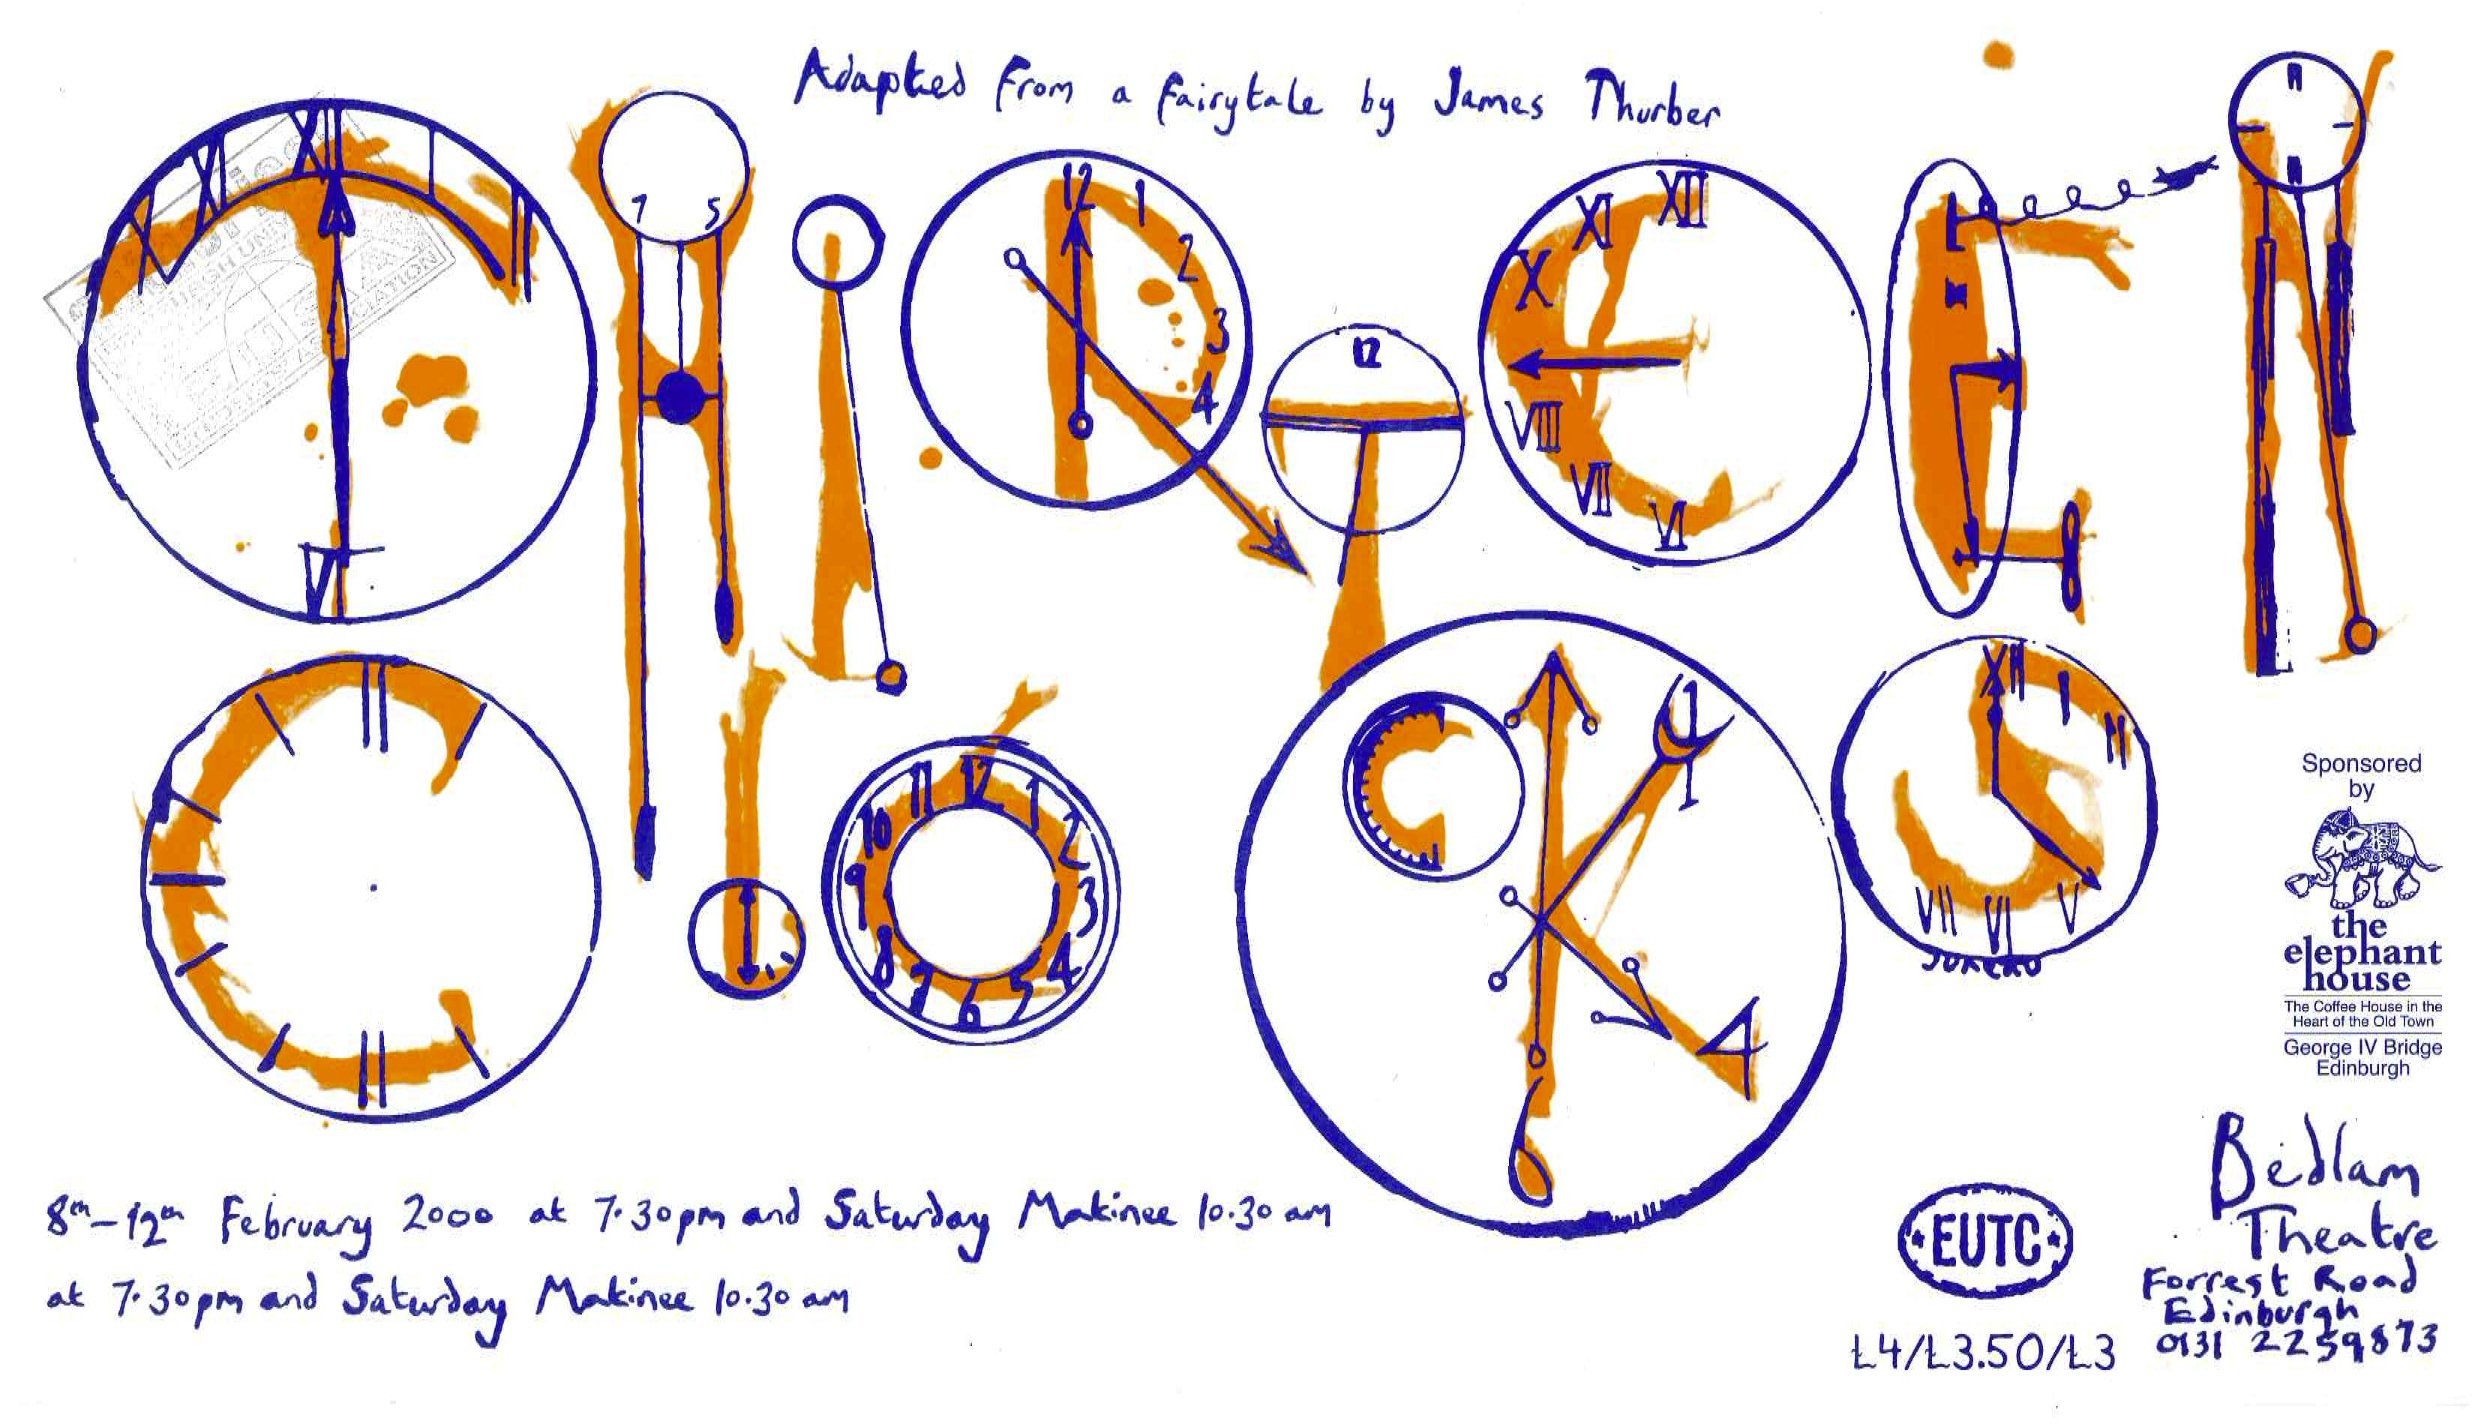 Adapted from a fairytale by James Thurber
THIRTEEN
CLOCKS
8th-12th February 2000 at 7.30pm and Saturday Matinee 10.30 am
at 7.30pm and Saturday Matinee 10.30 am
Sponsored
by
the
elephant
house
The Coffee House in the
Heart of the Old Town
George IV Bridge
Edinburgh
EUTC
Bedlam
Theatre
Forrest Road
Edinburgh
0131 2259873
£4/£3.50/£3